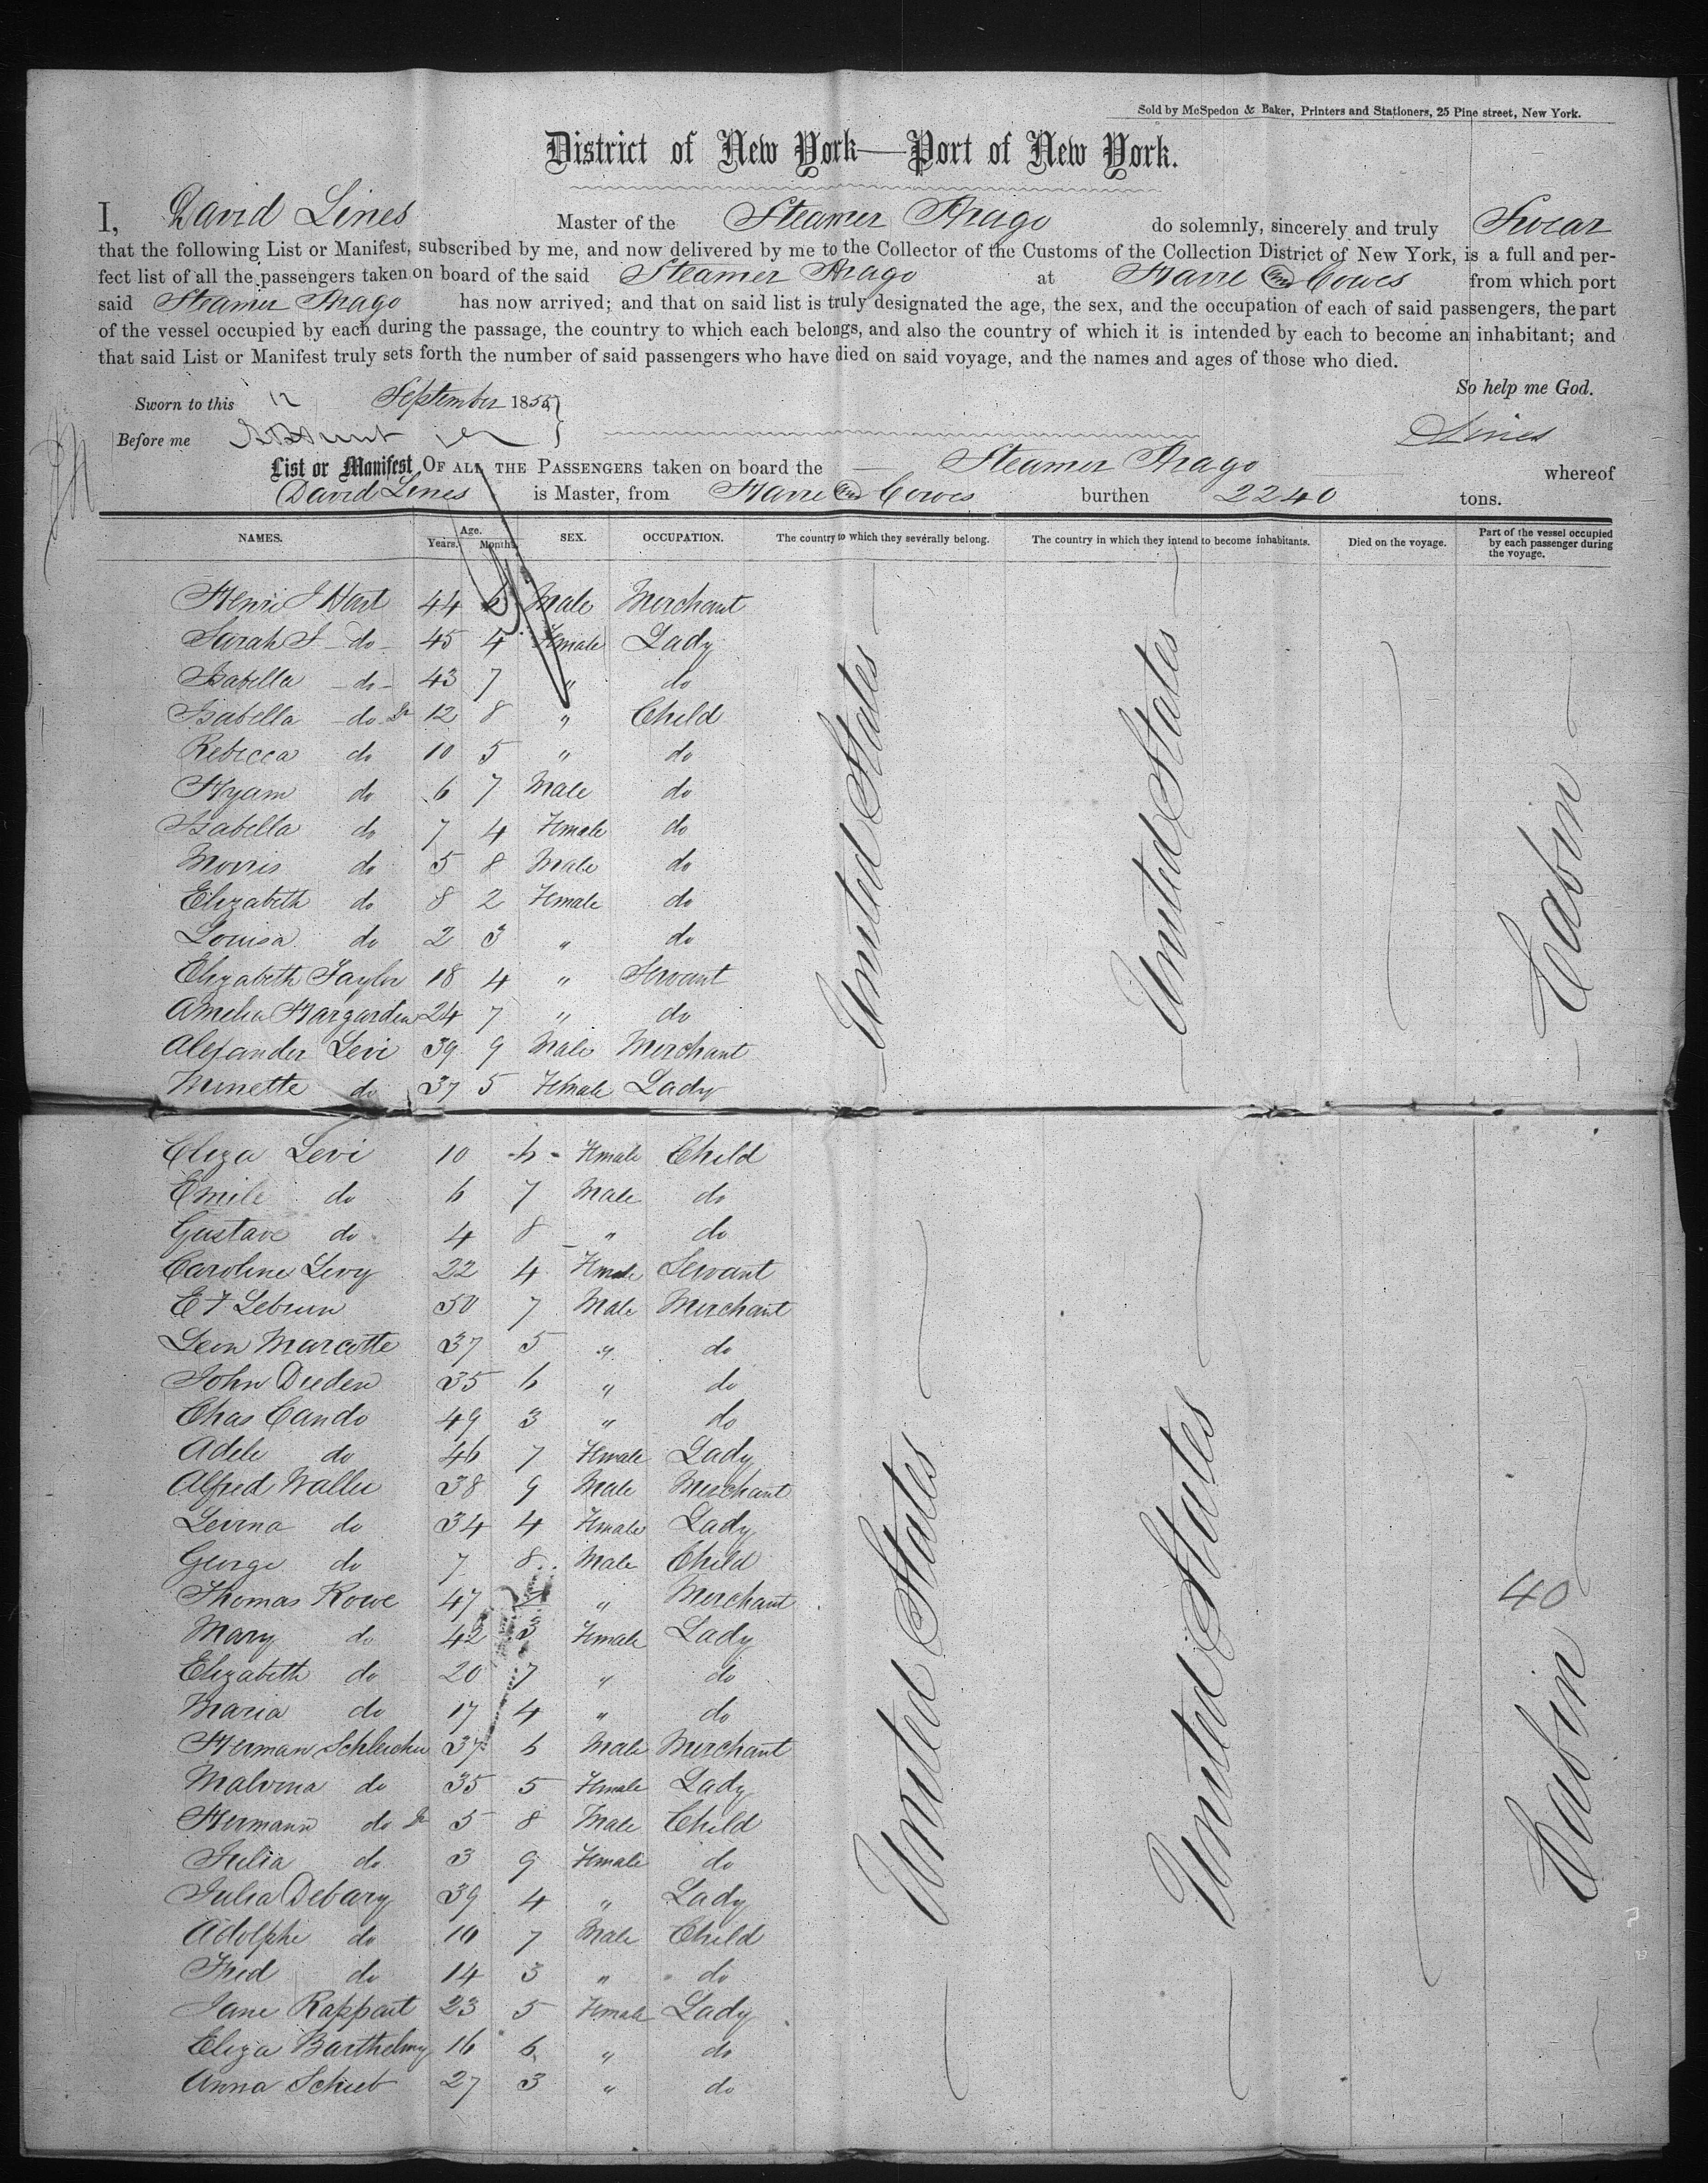 Sold by McSpedon & Baker, Printers and Stationers, 25 Pine street, New York.
District of New York—Port of New York.
I, David Lines Master of the Steamer Arago do solemnly, sincerely and truly Swear
that the following List or Manifest, subscribed by me, and now delivered by me to the Collector of the Customs of the Collection District of New York, is a full and per-
fect list of all the passengers taken on board of the said Steamer Arago at Havre and Cowes from which port
said Steamer Arago has now arrived; and that on said list is truly designated the age, the sex, and the occupation of each of said passengers, the part
of the vessel occupied by each during the passage, the country to which each belongs, and also the country of which it is intended by each to become an inhabitant; and
that said List or Manifest truly sets forth the number of said passengers who have died on said voyage, and the names and ages of those who died.
So help me God.
Sworn to this 12 September 1855
Before me Lines
List or Manifest, OF ALL THE PASSENGERS taken on board the Steamer Arago whereof
David Lines is Master, from Havre and Cowes burthen 2240 tons.
NAMES. Age. Years. Months. SEX. OCCUPATION. The country to which they severally belong. The country in which they intend to become inhabitants. Died on the voyage. Part of the vessel occupied by each passenger during the voyage.
Henri J Hart 44 6 Male Merchant
Sarah J - do - 45 4 Female Lady
Isabella - do - 43 7 " do
Isabella - do Jr 12 8 " Child
Rebecca do 10 5 " do
Hyam do 6 7 Male do
Isabella do 7 4 Female do
Morris do 5 8 Male do
Elizabeth do 8 2 Female do
Louisa do 2 3 " do
Elizabeth Taylor 18 4 " Servant
Amelia 24 7 " do
Alexander Levi 39 9 Male Merchant
Minette do 37 5 Female Lady
United States
United States
Cabin
Eliza Levi 10 6 Female Child
Emile do 6 7 Male do
Gustave do 4 8 " do
Caroline Levy 22 4 Female Servant
E F Lebrun 50 7 Male Merchant
Leon Marcotte 37 5 " do
John Dieden 35 6 " do
Chas Cando 49 3 " do
Adele do 46 7 Female Lady
Alfred Waller 38 9 Male Merchant
Levina do 34 4 Female Lady
George do 7 8 Male Child
Thomas Rowe 47 " Merchant
Mary do 42 3 Female Lady
Elizabeth do 20 7 " do
Maria do 17 4 " do
Herman Schleicher 37 6 Male Merchant
Malvina do 35 5 Female Lady
Hermann do Jr 5 8 Male Child
Julia do 3 9 Female do
Julia Debary 39 4 " Lady
Adolphe do 10 7 Male Child
Fred do 14 3 " do
Jane Rappart 23 5 Female Lady
Eliza Barthelmy 16 6 " do
Anna Schieb 27 3 " do
United States
United States
40
Cabin